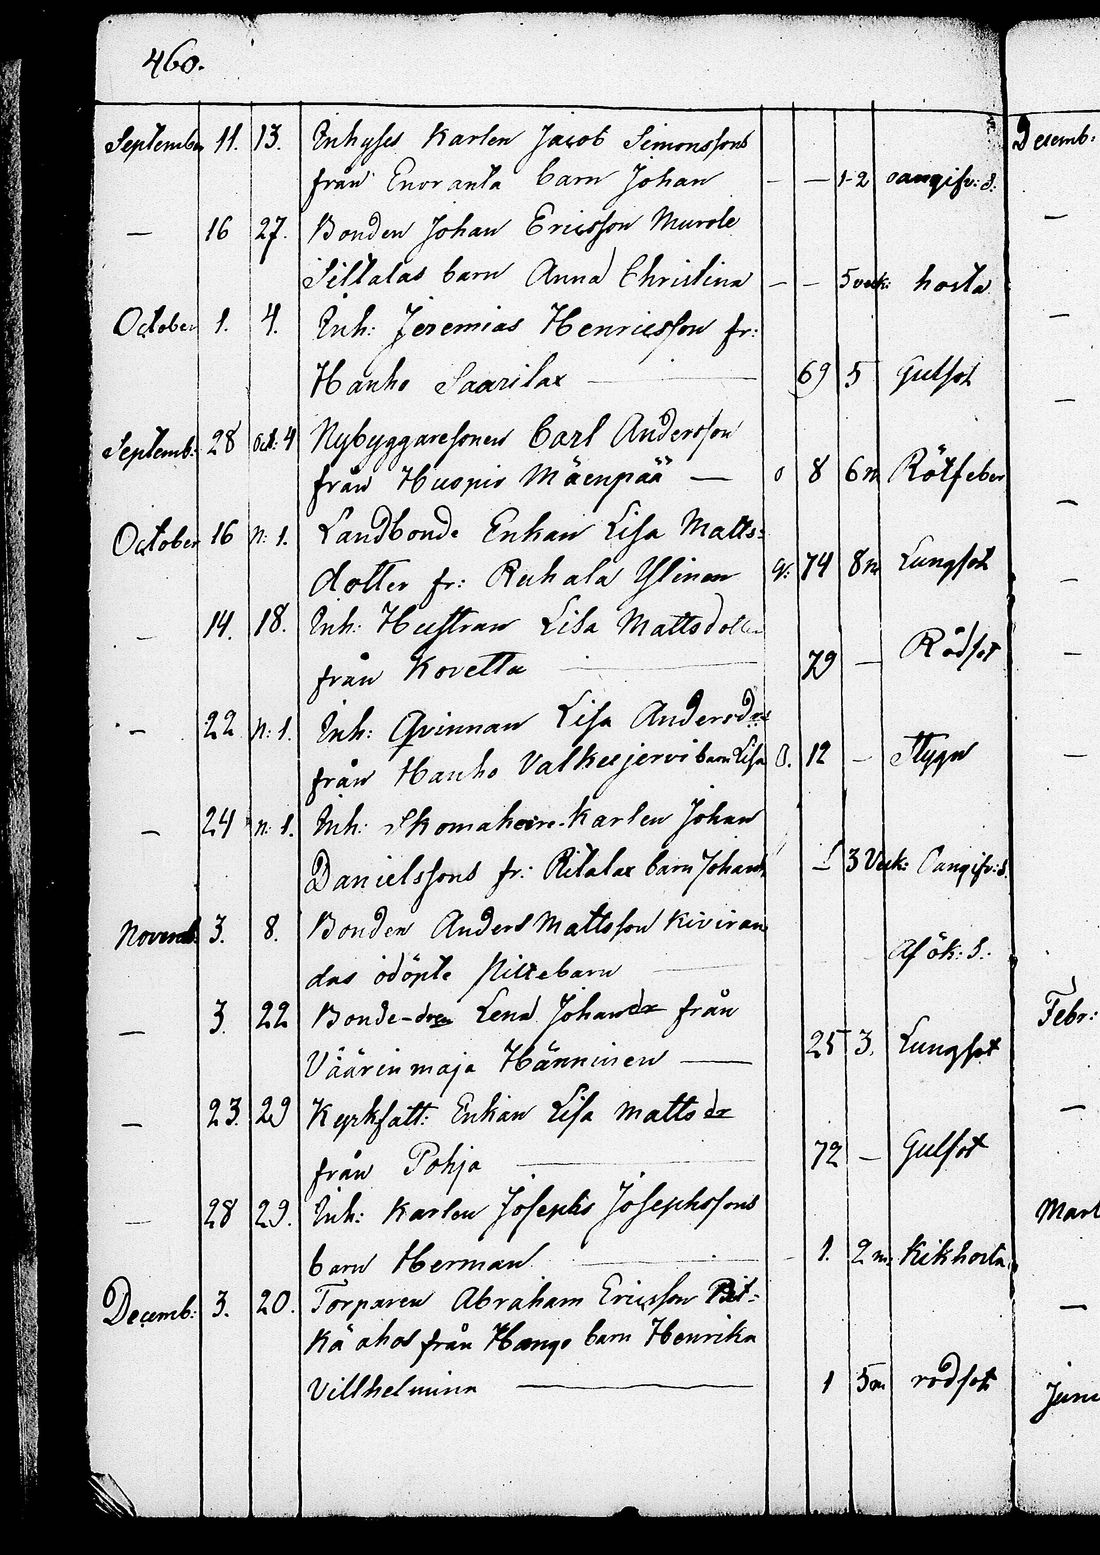 460.
September 11. 13. Inhyses Karlen Jacob Simonssons
från Enoranta barn Johan — — 1-2 oangifv: S.
— 16 27. Bonden Johan Ericsson Murole
Sillalas barn Anna Christina — — 5 veck: hosta
October 1. 4. Inh: Jeremias Henricsson fr:
Hanho Saarilax — 69 5 Gulsot
Septemb: 28 Oct: 4 Nybyggaresonen Carl Andersson
från Huopio Mäenpää — 8 6m Rötfeber
October 16 n: 1. Landbonde Enkan Lisa Matts-
dotter fr: Ruhala Ylinen 74 8m Lungsot
— 14. 18. Inh: Hustrun Lisa Mattsdotter
från Kovetta — 79 — Rödsot
— 22 n: 1. Inh: Qvinnan Lisa Andersdr
från Hanho Valkeejervi barn Lisa 12 — Stygn
— 24 n: 1. Inh: Skomakare-Karlen Johan
Danielssons fr: Ritalax barn Johan 3 Veck: Oangifv: S.
Novemb. 3. 8. Bonden Anders Mattsson Kiviran-
das odöpte barn — Af ök: S.
— 3. 22 Bonde-dren Lena Johansdr från
Väärinmaja Hänninen — 25 3. Lungsot
— 23. 29 Kyrkfatt: Enkan Lisa Mattsdr
från Pohja — 72 — Gulsot
— 28 29. Inh: Karlen Josephs Josephssons
barn Herman — 1. 2 m: Kikhosta
Decemb: 3. 20. Torparen Abraham Ericsson Pit-
kä ahos från Hango barn Henrika
Villhelmina — 1 5m rödsot
Decemb:
—
—
—
—
—
—
—
Febr:
—
Mart
—
Juni